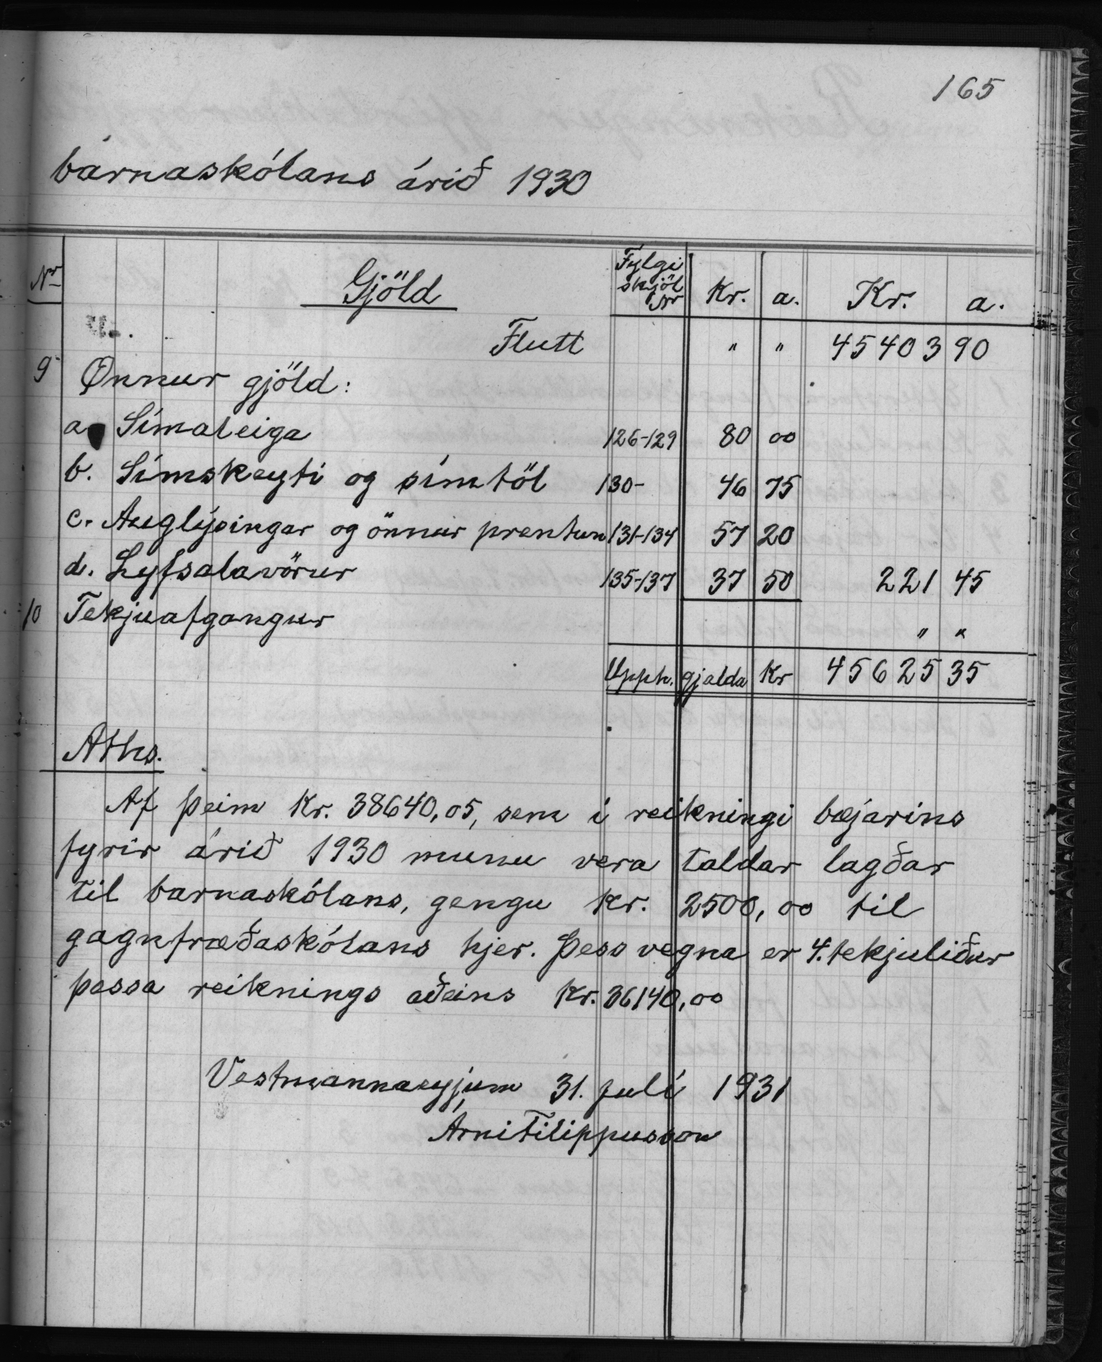 165
barnaskólans árið 1930
Nr Gjöld Fylgi skjöl Nr Kr. a. Kr. a.
Flutt " " 45403 90
9 Önnur gjöld:
a. Símaleiga 126-129 80 00
b. Símskeyti og símtöl 130- 46 75
c. Auglýsingar og önnur prentun 131-134 57 20
d. Lyfsalavörur 135-137 37 50 221 45
10 Tekjuafgangur " "
Upph. gjalda Kr 45625 35
Aths.
Af þeim Kr. 38640,05, sem í reikningi bæjarins
fyrir árið 1930 munu vera taldar lagðar
til barnaskólans, gengu Kr. 2500,00 til
gagnfræðaskólans hjer. Þess vegna er 4. tekjuliður
þessa reiknings aðeins Kr. 36140,00
Vestmannaeyjum 31. júlí 1931
Árni Filippusson